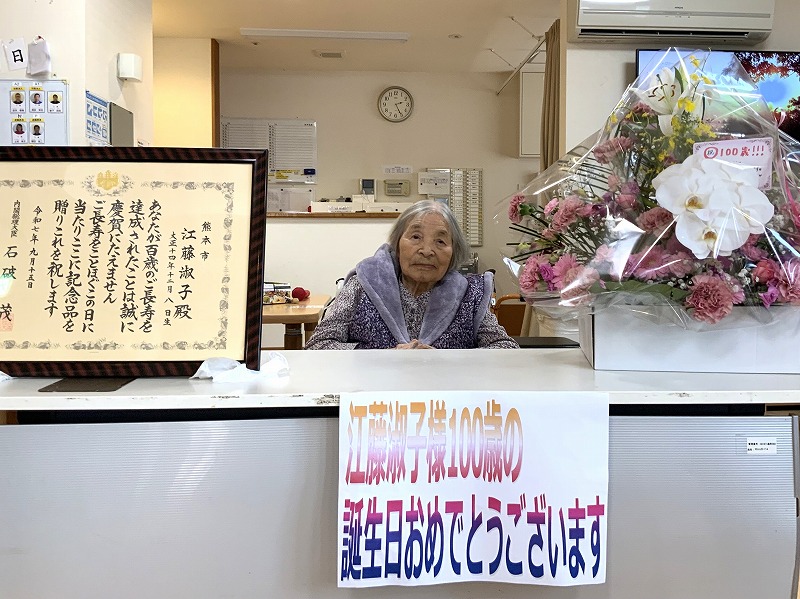 熊本市
江藤淑子殿
大正十四年十二月八日生
あなたが百歳のご長寿を
達成されたことは誠に
慶賀にたえません
ご長寿をことほぐこの日に
当たりここに記念品を
贈りこれを祝します
令和七年九月十五日
内閣総理大臣 石破 茂
日
祝100歳!!!
江藤淑子様100歳の
誕生日おめでとうございます